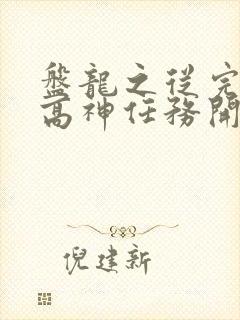 盤龍之從完
高神任務開
倪建新